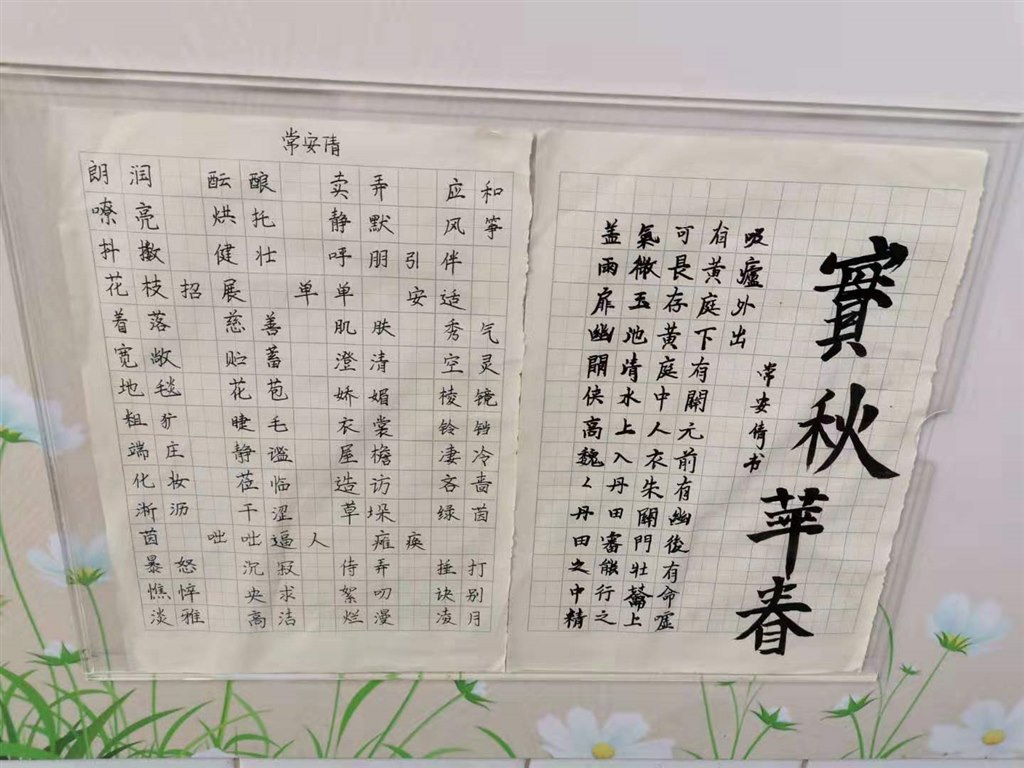 常安倩
朗润 酝酿 卖弄 应和
嘹亮 烘托 静默 风筝
抖擞 健壮 呼朋引伴
花枝招展 单单 安适
着落 慈善 肌肤 秀气
宽敞 贮蓄 澄清 空灵
地毯 花苞 娇媚 棱镜
粗犷 睫毛 衣裳 铃铛
端庄 静谧 屋檐 凄冷
化妆 莅临 造访 吝啬
淅沥 干涩 草垛 绿茵
茵 咄咄逼人 瘫痪
暴怒 沉寂 侍弄 捶打
憔悴 央求 絮叨 诀别
淡雅 高洁 烂漫 凌月
實秋華春
常安倩书
吸廬外出
有黄庭下有關元前有幽後有命嘘
可長存黄庭中人衣朱關門壯籥上
氣微玉地清水上入丹田審能行之
蓋雨扉幽關侠高巍々丹田之中精